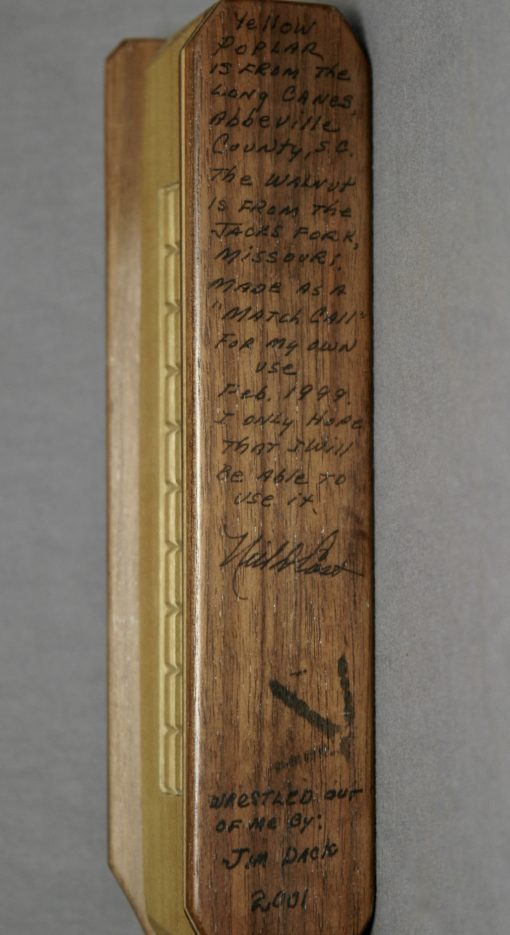 Yellow
POPLAR
IS FROM The
LONG CANES,
Abbeville
County, S.C.
The WALNUT
IS FROM THE
JACKS FORK,
MISSOURI.
MADE AS A
"MATCH CALL"
FOR MY OWN
USE
Feb. 1999.
I ONLY HOPE
THAT I WILL
BE Able TO
USE IT.
Neil D Cost
WRESTLED OUT
OF ME By:
JIM DACK
2001